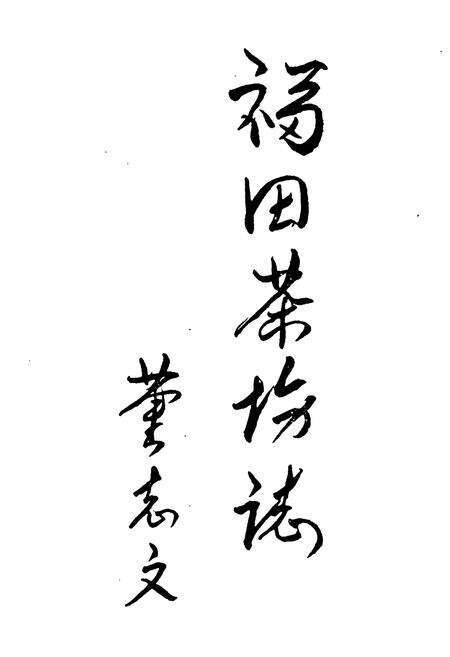 福田茶坊誌
董志文